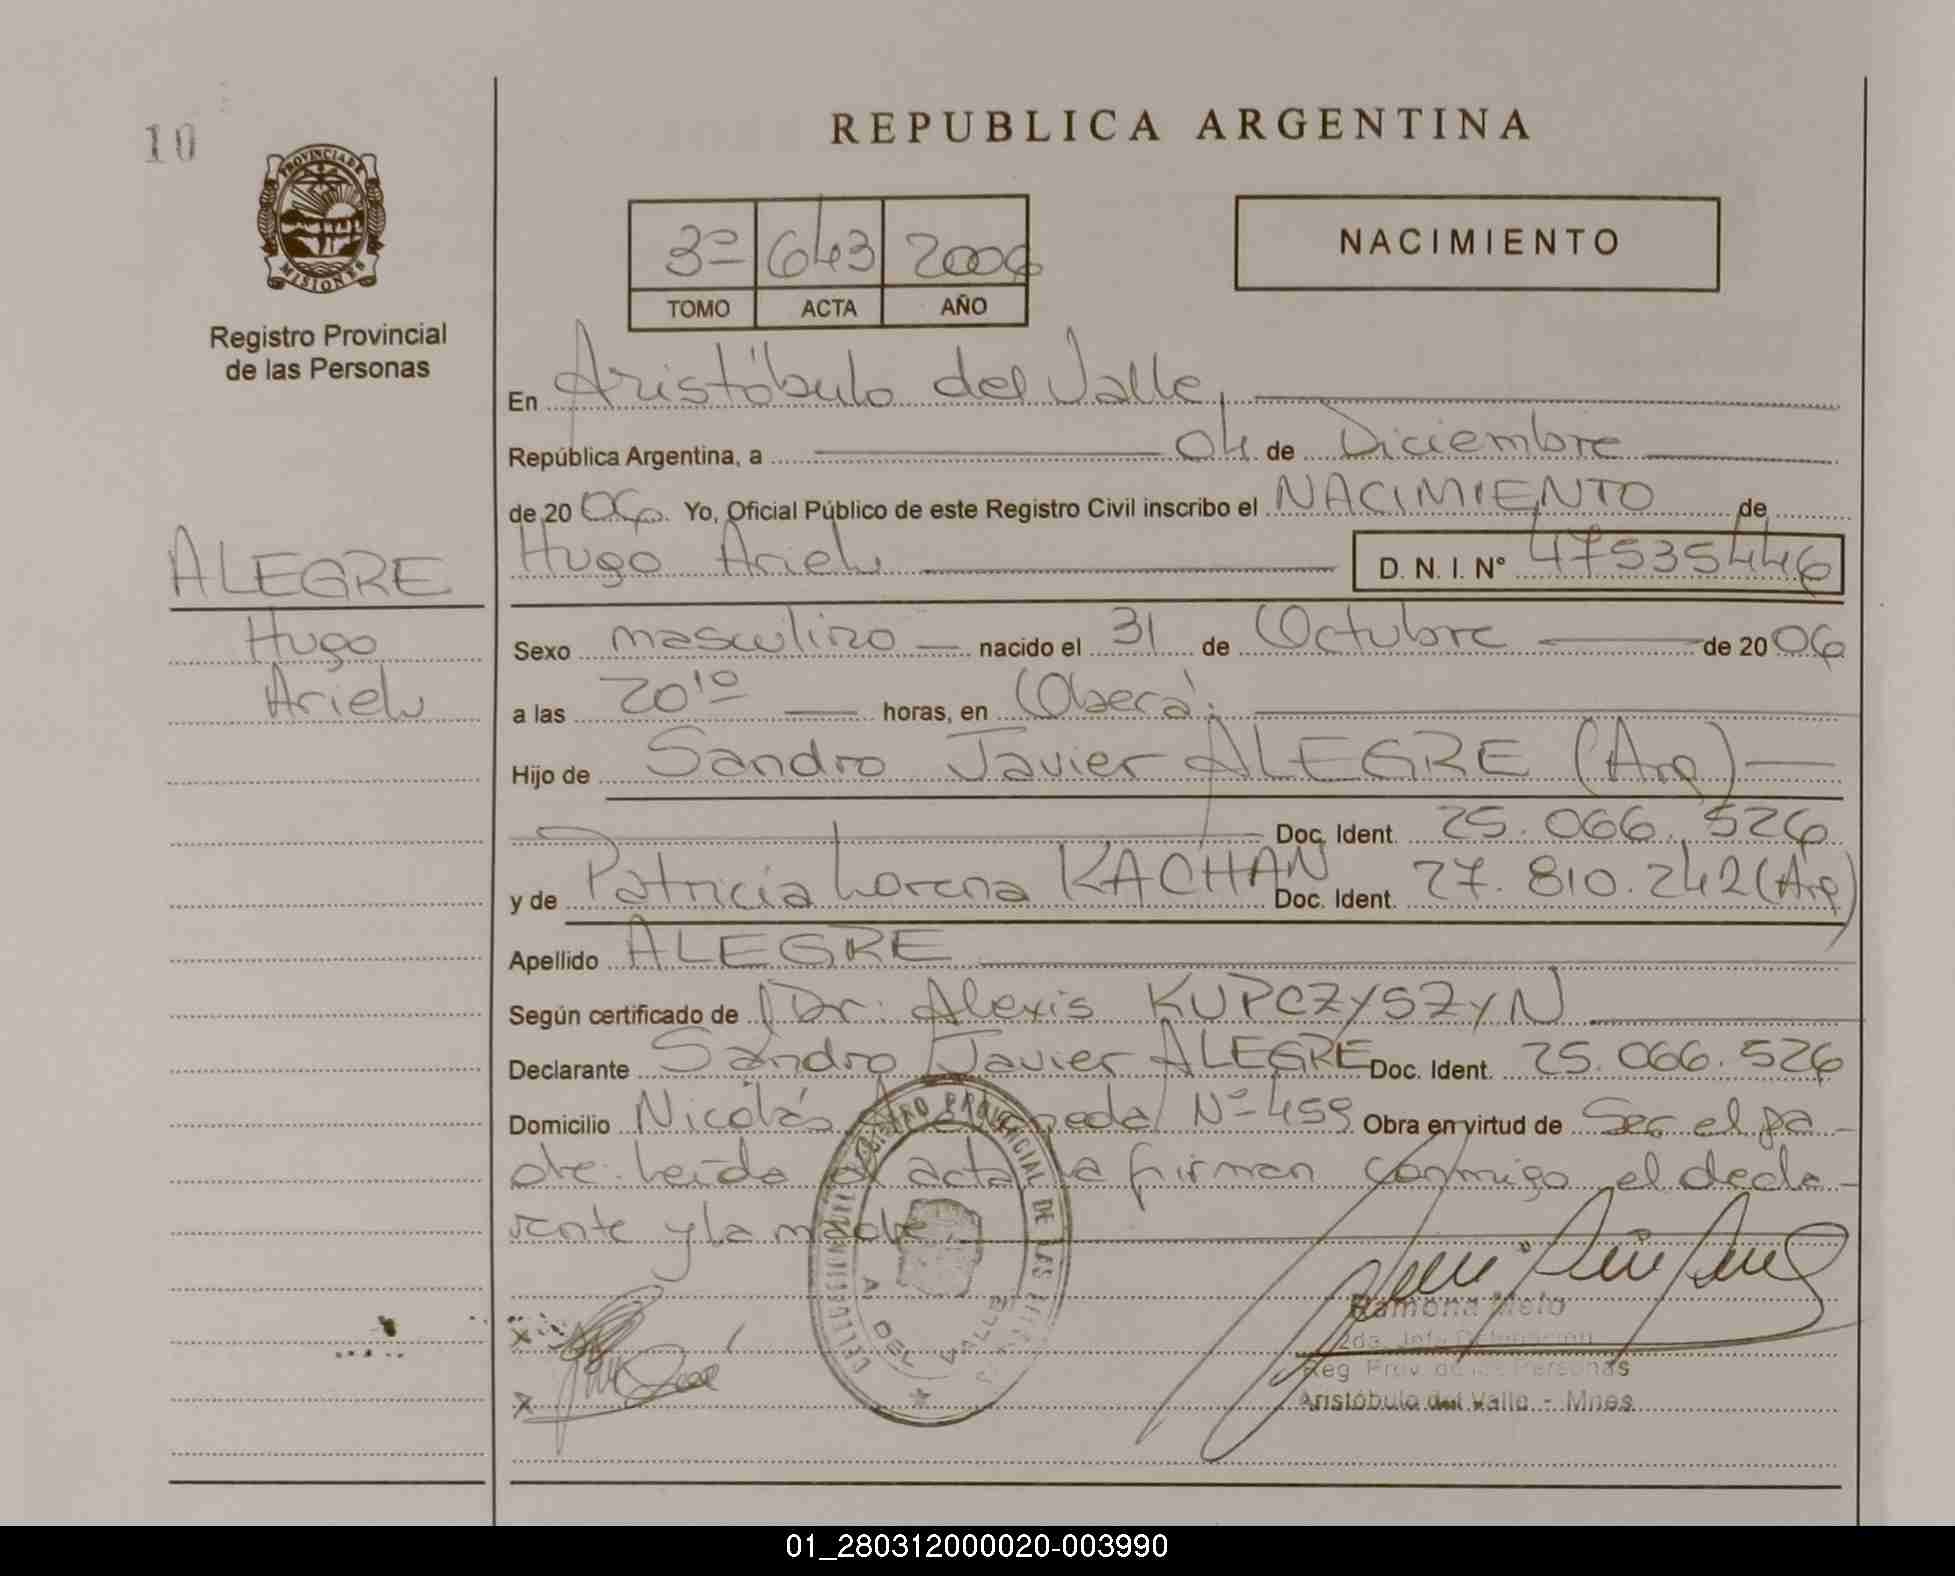 10
PROVINCIA DE
MISIONES
Registro Provincial
de las Personas
ALEGRE
Hugo
Ariel
REPUBLICA ARGENTINA
3º 643 2006
TOMO ACTA AÑO
NACIMIENTO
En Aristóbulo del Valle,
República Argentina, a 04 de Diciembre
de 2006. Yo, Oficial Público de este Registro Civil inscribo el NACIMIENTO de
Hugo Ariel D. N. I. Nº 47535446
Sexo masculino nacido el 31 de Octubre de 2006
a las 20¹⁰ horas, en Oberá.
Hijo de Sandro Javier ALEGRE (Arg)
Doc. Ident. 25.066.526
y de Patricia Lorena KACHAN Doc. Ident. 27.810.242 (Arg)
Apellido ALEGRE
Según certificado de Dr. Alexis KUPCZYSZYN
Declarante Sandro Javier ALEGRE Doc. Ident. 25.066.526
Domicilio Nicolás Nº 459 Obra en virtud de Ser el pa-
dre. Leída el acta la firman conmigo el decla-
rante y la madre.
REGISTRO PROVINCIAL DE LAS
A. DEL VALLE
x
x
Ramona Melo
2da. Jefa Delegación
Reg. Prov. de las Personas
Aristóbulo del Valle - Mnes
01_280312000020-003990